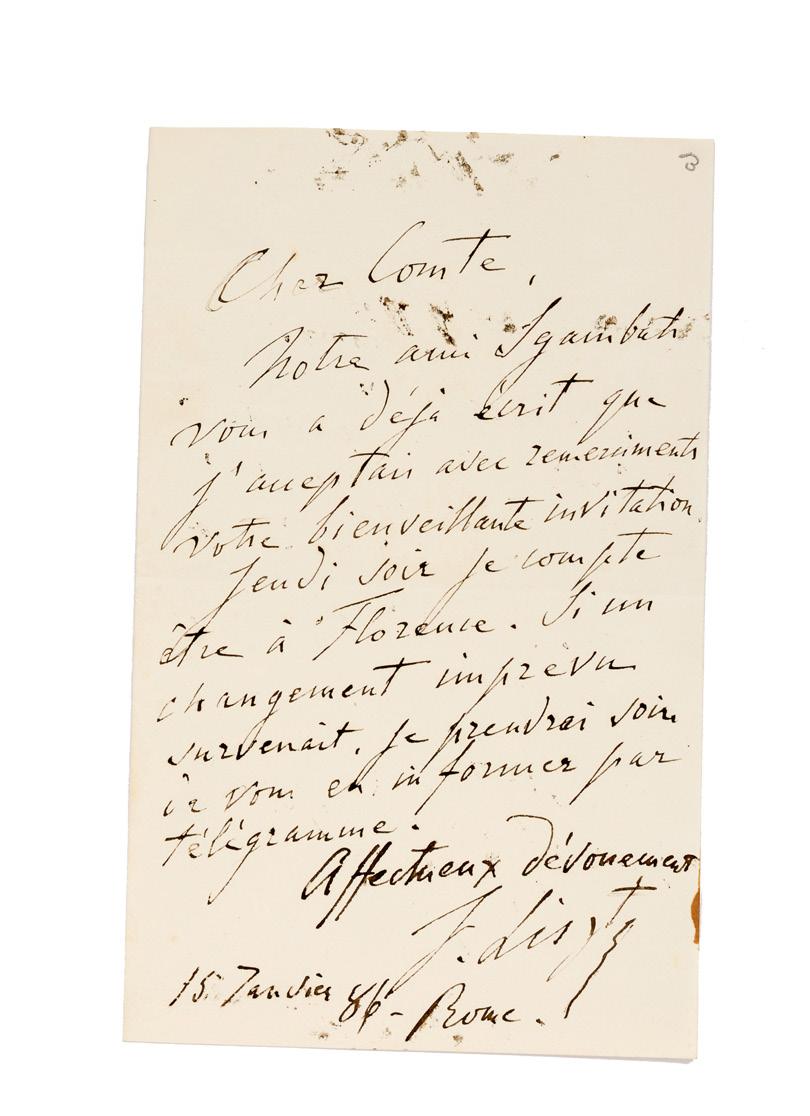 Cher Comte,
Notre ami Sgambati
vous a déjà écrit que
j'acceptais avec remerciments
votre bienveillante invitation.
Jeudi soir je compte
être à Florence. Si un
changement imprévu
survenait, je prendrai soin
de vous en informer par
télégramme.
Affectueux dévouement
F. Liszt
15 Janvier 86 - Rome.